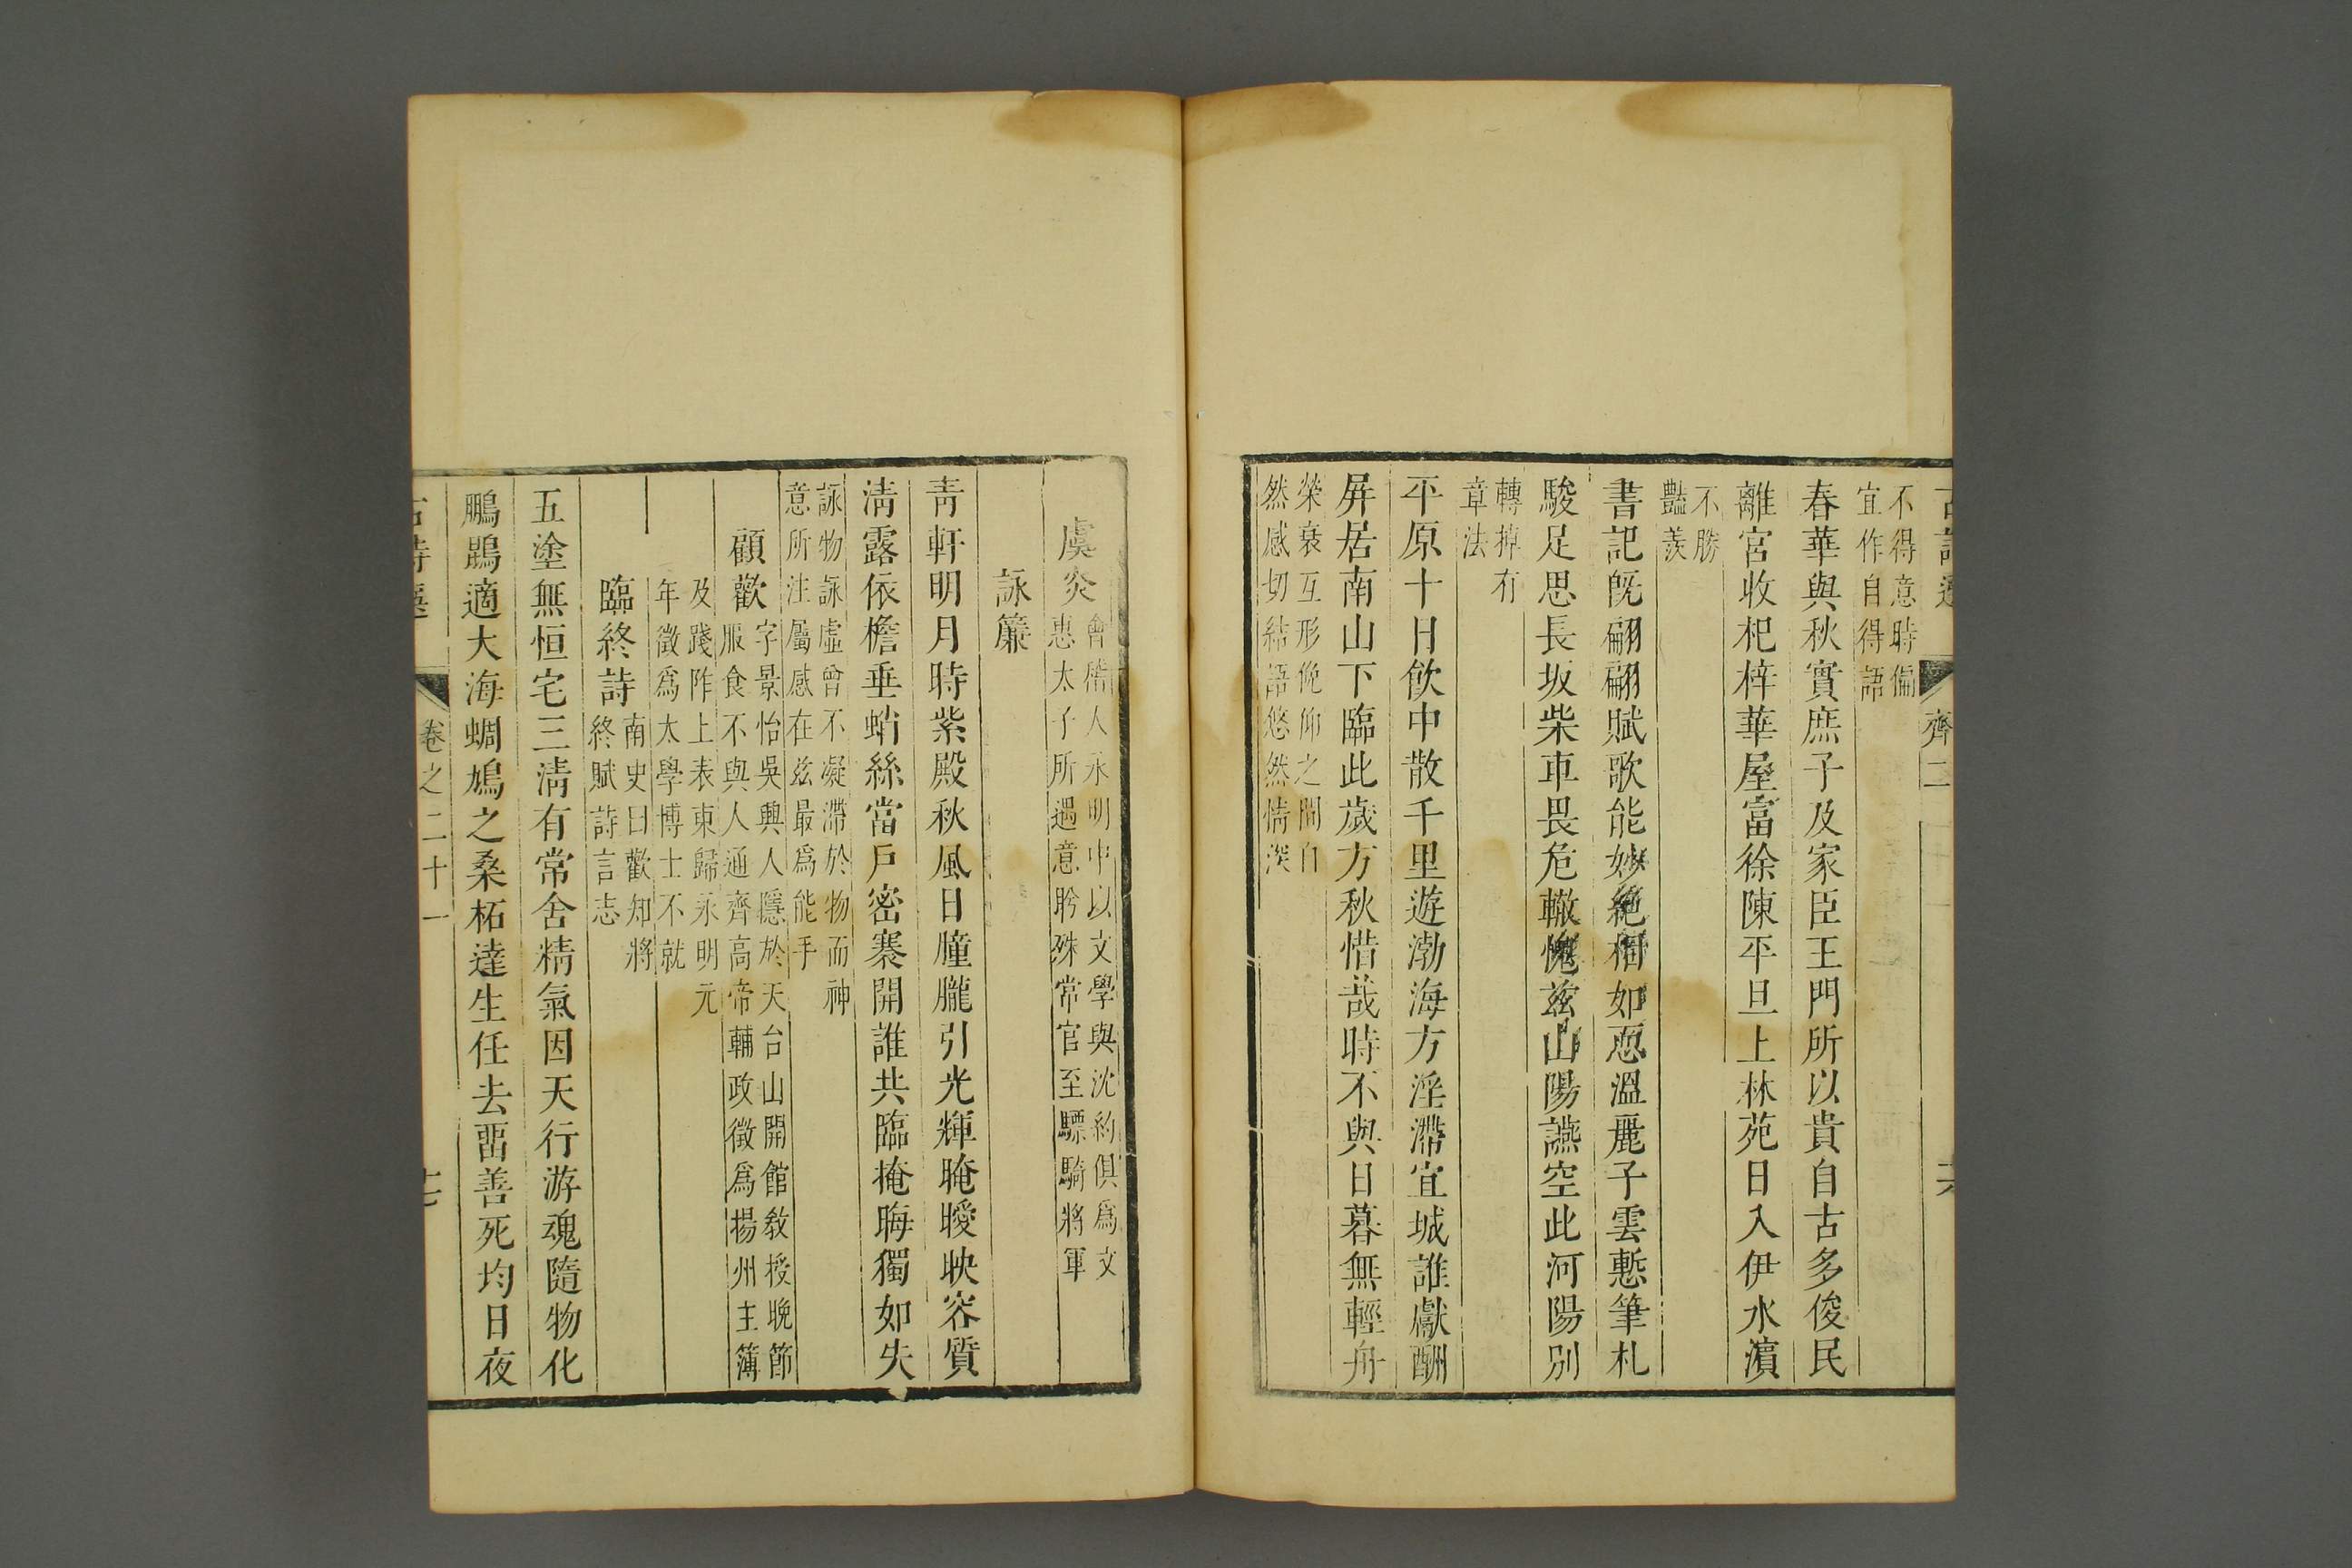 齊二
不得意時偏
宜作自得語
春華與秋實庶子及家臣王門所以貴自古多俊民
離宮收杞梓華屋富徐陳平旦上林苑日入伊水濱
不勝
豔羨
書記旣翩翩賦歌能妙絕相如恧溫麗子雲慙筆札
駿足思長坂柴車畏危轍愧茲山陽讌空此河陽別
轉掉有
章法
平原十日飲中散千里遊渤海方淫滯宜城誰獻酬
屏居南山下臨此歲方秋惜哉時不與日暮無輕舟
榮衰互形俛仰之間自
然感切結語悠然情深
虞炎
會稽人永明中以文學與沈約俱爲文
惠太子所遇意眄殊常官至驃騎將軍
詠簾
青軒明月時紫殿秋風日朣朧引光輝晻曖映容質
清露依檐垂蛸絲當戶密褰開誰共臨掩晦獨如失
詠物詠虛曾不凝滯於物而神
意所注屬感在茲最爲能手
顧歡
字景怡吳興人隱於天台山開館敎授晚節
服食不與人通齊高帝輔政徵爲揚州主簿
及踐阼上表東歸永明元
年徵爲太學博士不就
臨終詩
南史曰歡知將
終賦詩言志
五塗無恒宅三淸有常舍精氣因天行游魂隨物化
鵬鵾適大海蜩鳩之桑柘達生任去畱善死均日夜
卷之二十一